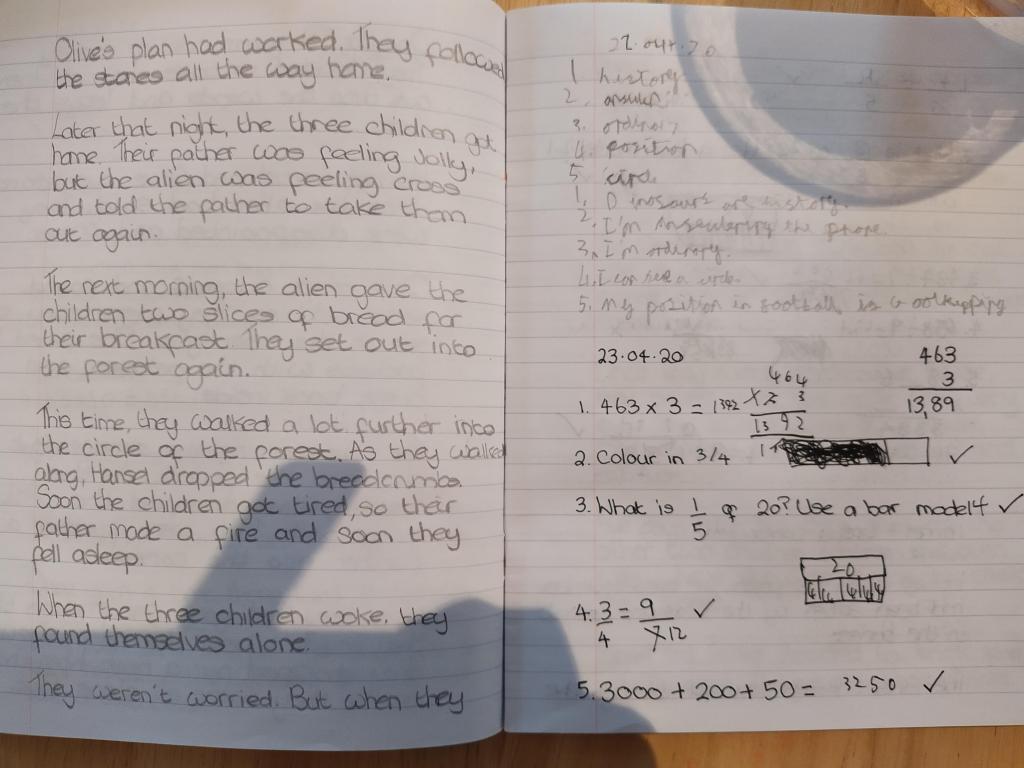 Olive's plan had worked. They followed
the stones all the way home.
Later that night, the three children got
home. Their father was feeling Jolly,
but the alien was feeling cross
and told the father to take them
out again.
The next morning, the alien gave the
children two slices of bread for
their breakfast. They set out into
the forest again.
This time, they walked a lot further into
the circle of the forest. As they walked
along, Hansel dropped the breadcrumbs.
Soon the children got tired, so their
father made a fire and soon they
fell asleep.
When the three children woke, they
found themselves alone.
They weren't worried. But when they
1 history
2.
3.
4. position
5.
1. Dinosaurs are history.
2. I'm the phone.
3. I'm
4. I can see a
5. My position in football is
23.04.20
463
3
13,89
1. 463 x 3 = 1392
464
x 3
1392
1
2. Colour in 3/4 ✓
3. What is 1/5 of 20? Use a bar model 4 ✓
20
4 4 4 4 4
4. 3/4 = 9/12 ✓
5. 3000 + 200 + 50 = 3250 ✓